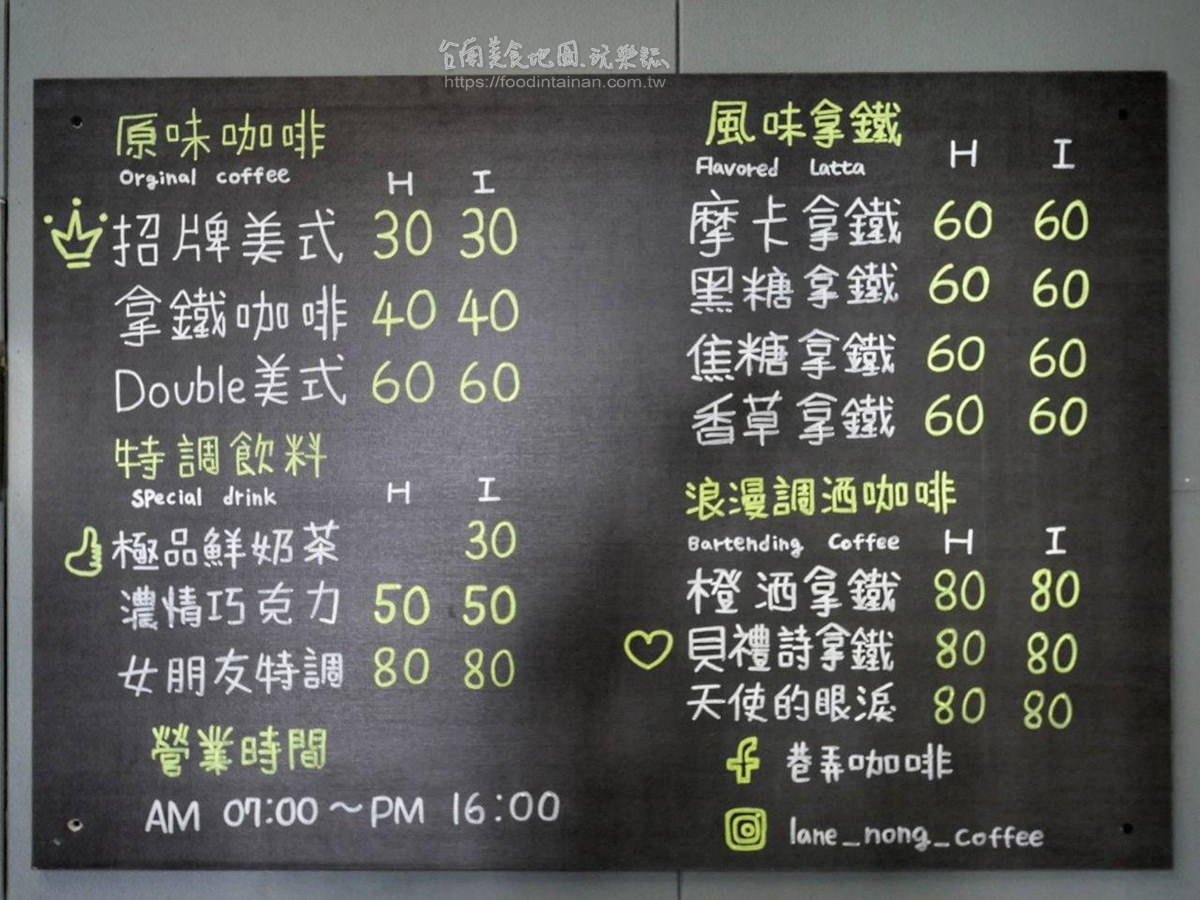 台南美食地圖.玩樂誌
https://foodintainan.com.tw
原味咖啡
Orginal coffee
H I
招牌美式 30 30
拿鐵咖啡 40 40
Double美式 60 60
特調飲料
Special drink H I
極品鮮奶茶 30
濃情巧克力 50 50
女朋友特調 80 80
營業時間
AM 07:00～PM 16:00
風味拿鐵
Flavored Latta H I
摩卡拿鐵 60 60
黑糖拿鐵 60 60
焦糖拿鐵 60 60
香草拿鐵 60 60
浪漫調酒咖啡
Bartending Coffee H I
橙酒拿鐵 80 80
貝禮詩拿鐵 80 80
天使的眼淚 80 80
巷弄咖啡
lane_nong_coffee